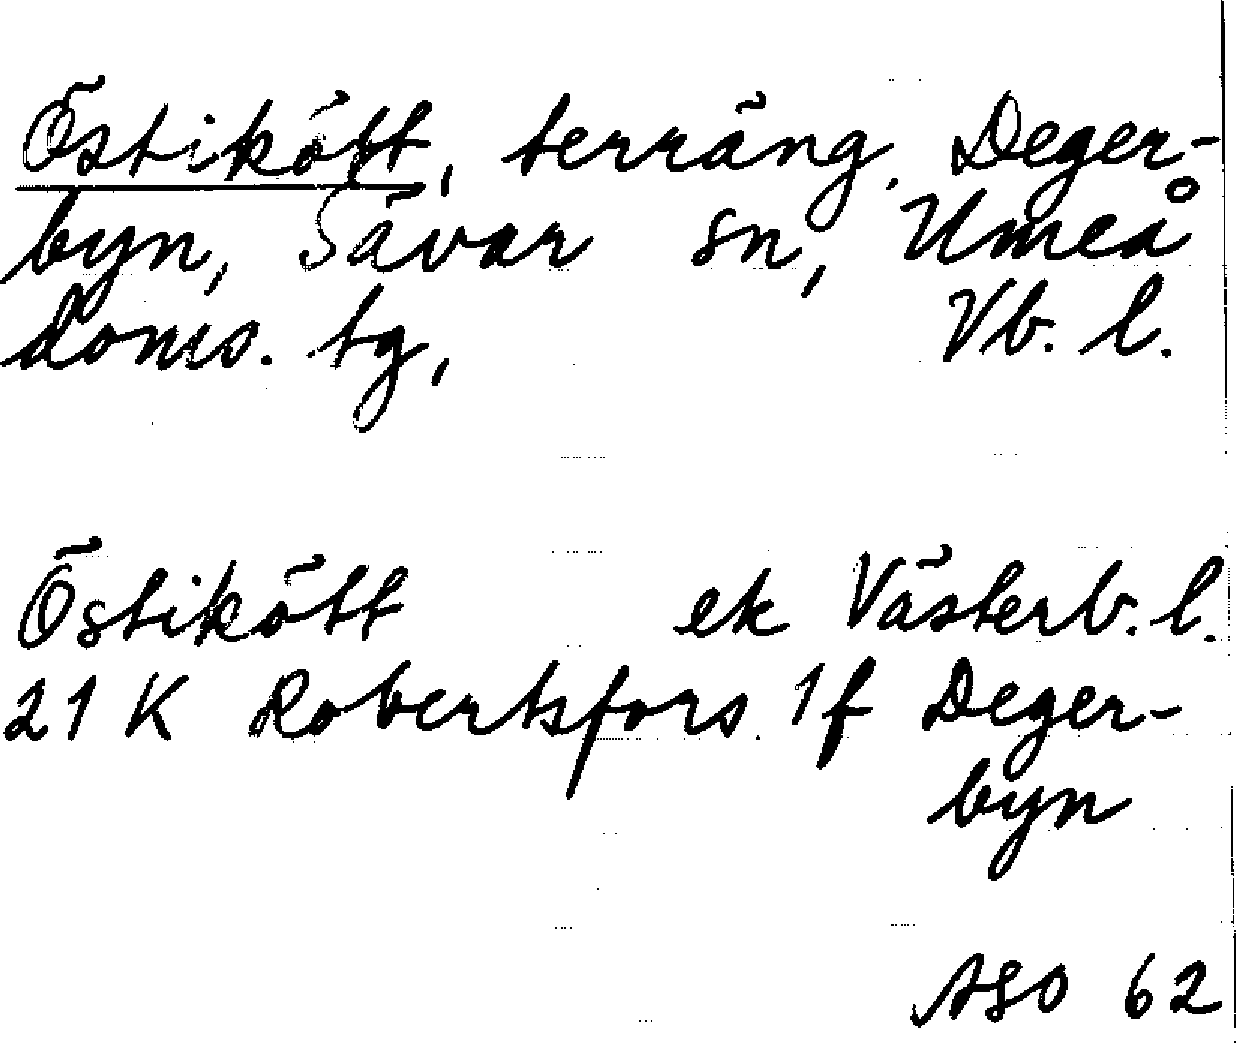 Östikött, terräng. Deger-
byn, Sävar sn, Umeå
doms. tg, Vb. l.
Östikött ek Västerb. l.
21 K Robertsfors 1f Deger-
byn
ASO 62